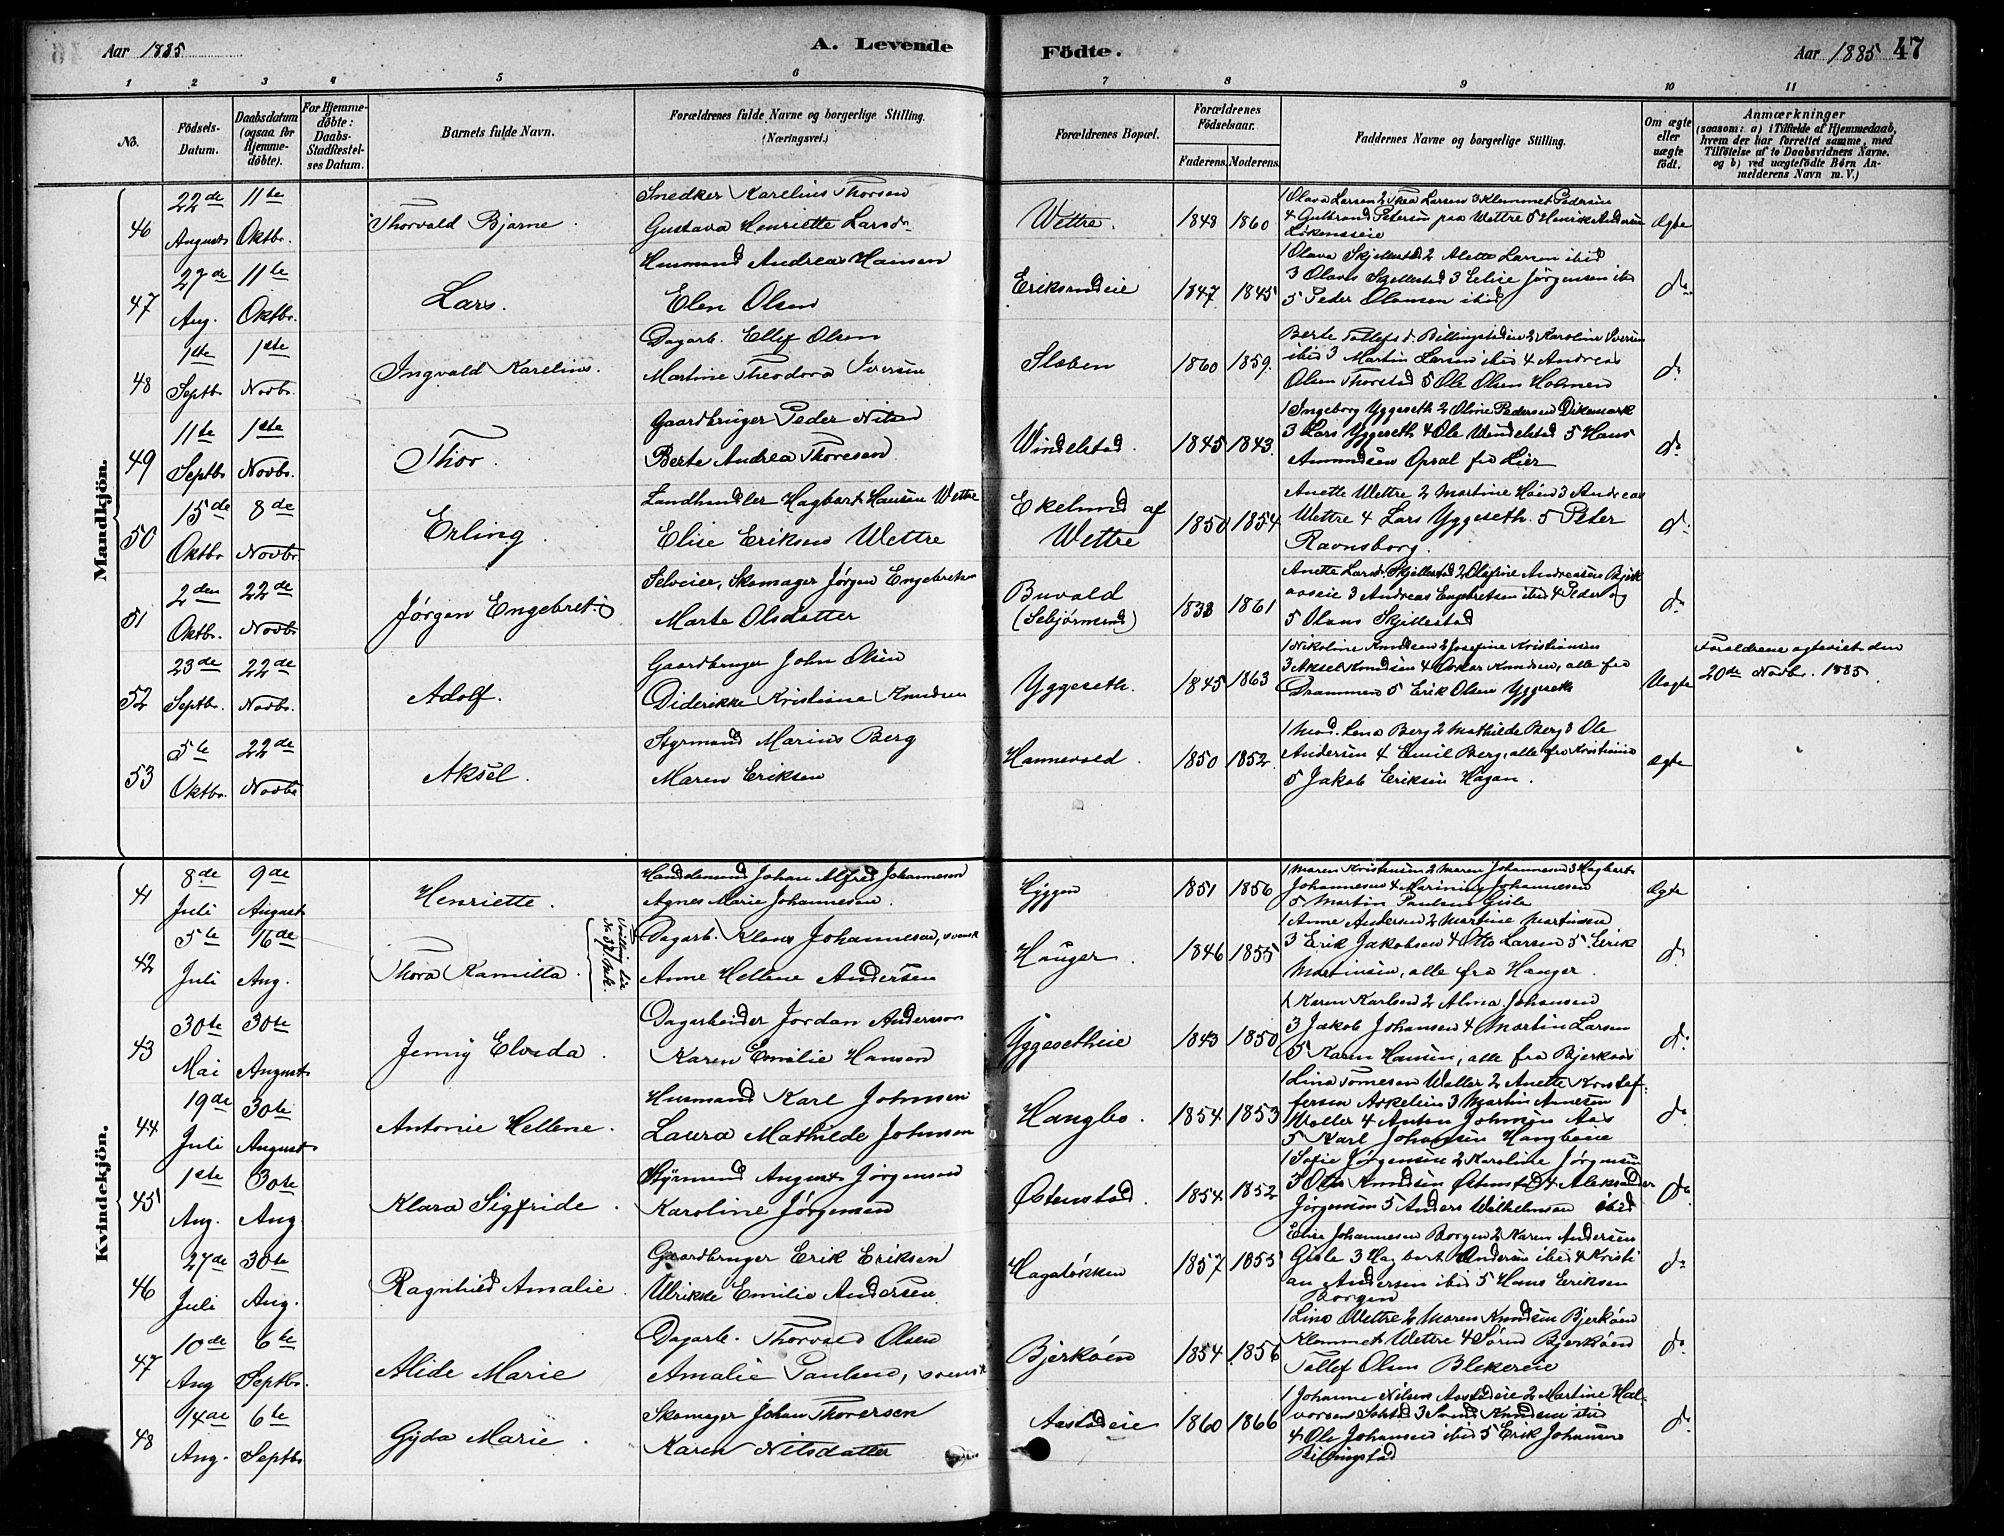 Aar 1885
A. Levende
Födte.
Aar 1885 47
1 2 3 4 5 6 7 8 9 10 11
No.
Födsels-Datum.
Daabsdatum (ogsaa for Hjemme-döbte).
For Hjemme-döbte: Daabs-Stadfæstel-ses Datum.
Barnets fulde Navn.
Forældrenes fulde Navne og borgerlige Stilling. (Næringsvei.)
Forældrenes Bopæl.
Forældrenes Födselsaar.
Faderens. Moderens.
Faddernes Navne og borgerlige Stilling.
Om ægte eller uægte födt.
Anmærkninger
(saasom: a) i Tilfælde af Hjemmedaab, hvem der har forrettet samme, med Tilföielse af to Daabsvidners Navne, og b) ved uægtefödte Börn An-melderens Navn m. V.)
Mandkjön.
46 22de August 11te Oktbr. Thorvald Bjarne.
Snedker Karelius Thorsen
Gustava Henriette Larsdr
Wettre. 1848 1860
1 Olava Larsen 2 Thea Larsen 3 Klemmet Pedersen
4 Gulbrand Petersen paa Wettre 5 Henrik Andersen
Løkenseie
Ægte
47 27de Aug. 11te Oktbr. Lars.
Husmand Andreas Hansen
Elen Olsen
Eriksrudeie 1847 1845
1 Olava Skjellestad 2 Alette Larsen ibid
3 Olaves Skjellestad 3 Eelise Jørgensen ibd
5 Peder Olausen ibid
do
48 1ste Septbr. 1ste Novbr. Ingvald Karelius.
Dagarb. Ellef Olsen
Martine Theodora Iversen
Slæben 1860 1859.
Berte Tollefsd. Billingstadeie 2 Karoline Iversen
ibid 3 Martin Larsen ibid 4 Andreas
Olsen Thorstad 5 Ole Olsen Holmen
do
49 11te Septbr. 1ste Novbr. Thor.
Gaardbruger Peder Nilsen
Berte Andrea Thoresen
Windelstad. 1845 1843
1 Ingeborg Yggeseth 2 Oline Pedersen Dikemark
3 Lars Yggeseth 4 Ole Windelstad 5 Hans
Amundsen Opsal fra Lier
do
50 15de Oktbr. 8de Novbr. Erling.
Landhandler Hagbart Hansen Wettre
Elise Eriksen Wettre
Ekelund af Wettre 1850 1854
Anette Wettre 2 Martine Høen 3 Andreas
Wettre 4 Lars Yggeseth. 5 Peter
Ravnsborg.
do
51 2den Oktbr. 22de Novbr. Jørgen Engebret
Selveier, Skomager Jørgen Engebretsen
Marte Olsdatter
Buvald (Sebjørnsrud) 1838 1861
Anette Larsd. Skjellestad 2 Olafine Andreasen Bjerk
aaseie 3 Andreas Engebretsen ibid 4 Peder og
5 Olaus Skjellestad
do
52 23de Septbr. 22de Novbr. Adolf.
Gaardbruger John Olsen
Diderikke Kristiane Knudsen
Yggeseth. 1845 1863
1 Nikoline Knudsen 2 Josefine Kristiansen
3 Aksel Knudsen 4 Oskar Knudsen, alle fra
Drammen 5 Erik Olsen Yggeseth
Uægte
Forældrene ægteviet den
20de Novbr. 1885.
53 5te Oktbr. 22de Novbr Aksel.
Styrmand Marius Berg
Maren Eriksen
Hannevold. 1850 1852
1 Mad. Lena Berg 2 Mathilde Berg 3 Ole
Andersen 4 Emil Berg, alle fra Kristiania
5 Jakob Eriksen Hagan.
ægte
Kvindekjön.
41 8de Juli 9de August Henriette.
Handelsmand Johan Alfred Johannesen
Agnes Marie Johannesen.
Hyggen 1851 1856
1 Maren Kristensen 2 Maren Johannesen 3 Hagbart
Johannesen 4 Johannesen
5 Martin Paulsen Gisle
Ægte
42 5te Juli 16de Aug. Thora Kamilla.
Tvilling
Dagarb. Klaus Johannesen, svensk
Anne Hellene Andersen
Hauger. 1846 1855
1 Anne Andersen 2 Martine Martinsen
3 Erik Jakobsen 4 Otto Larsen 5 Eerik
Martinsen, alle fra Hauger.
do
43 30te Mai 30te August Jenny Elvida.
Dagarbeider Jordan Anderson
Karen Emilie Hansen
Yggesetheie 1843 1850
1 Karen Karlsen 2 Alma Johansen
3 Jakob Johansen 4 Martin Larsen
5 Karen Hansen, alle fra Bjerkaas
do
44 19de Juli 30te August Antonie Hellene.
Husmand Karl Johnsen
Laura Mathilde Johnsen
Haugbo. 1854 1853
1 Lina Tomesen Woller 2 Anette Kristof-
fersen 3 Martin
Woller 4 Anton Johnsen Aas
5 Karl Johansen Haugboeie
do
45 1ste Aug. 30te Aug. Klara Sigfride.
Styrmand August Jörgensen
Karoline Jørgensen
Østenstad. 1854 1852
1 Sofie Jørgensen 2 Karoline Jörgensen
3 Knudsen Østenstad 4 Aleksander
Jörgensen 5 Anders Wilhelmsen ibid
do
46 27de Juli 30te Aug. Ragnhild Amalie.
Gaardbruger Erik Eriksen
Ulrikke Emilie Andersen
Hagaløkken 1857 1855
Elise Johannesen Borgen 2 Karen Andersen
Gisle 3 Hagbart Andersen ibid 4 Kristi
an Andersen ibid 5 Hans Eriksen
Borgen
do
47 10de Aug 6te Septbr. Alide Marie
Dagarb. Thorvald Olsen
Amalie Paulsen, svensk
Bjerkøen 1854 1856
1 Lina Wettre 2 Maren Knudsen Bjerkøen
Klemmet Wettre 4 Søren Bjerkøen
Tollef Olsen Blekereie
do
48 14de Aug. 6te Septbr Gyda Marie.
Skomager Johan Thoversen
Karen Nilsdatter
Aastadeie 1860 1866
1 Johanne Nilsen Aastadeie 2 Martine Hal-
vorsen 3 Knudsen ibid
4 Ole Johansen ibid 5 Erik Johansen
Billingstad
do